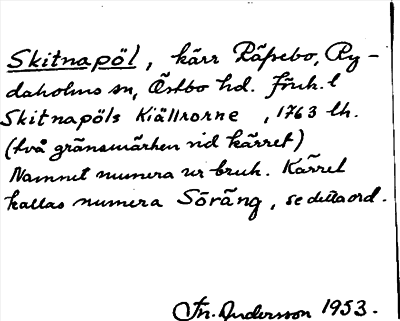 Skitnapöl, kärr Räfsebo, Ry-
daholms sn, Östbo hd. förk. l
Skitnapöls Kiällrorne, 1763 lh.
(två gränsmärken vid kärret)
Namnet numera ur bruk. Kärret
kallas numera Söräng, se detta ord.
Fr. Andersson 1953.